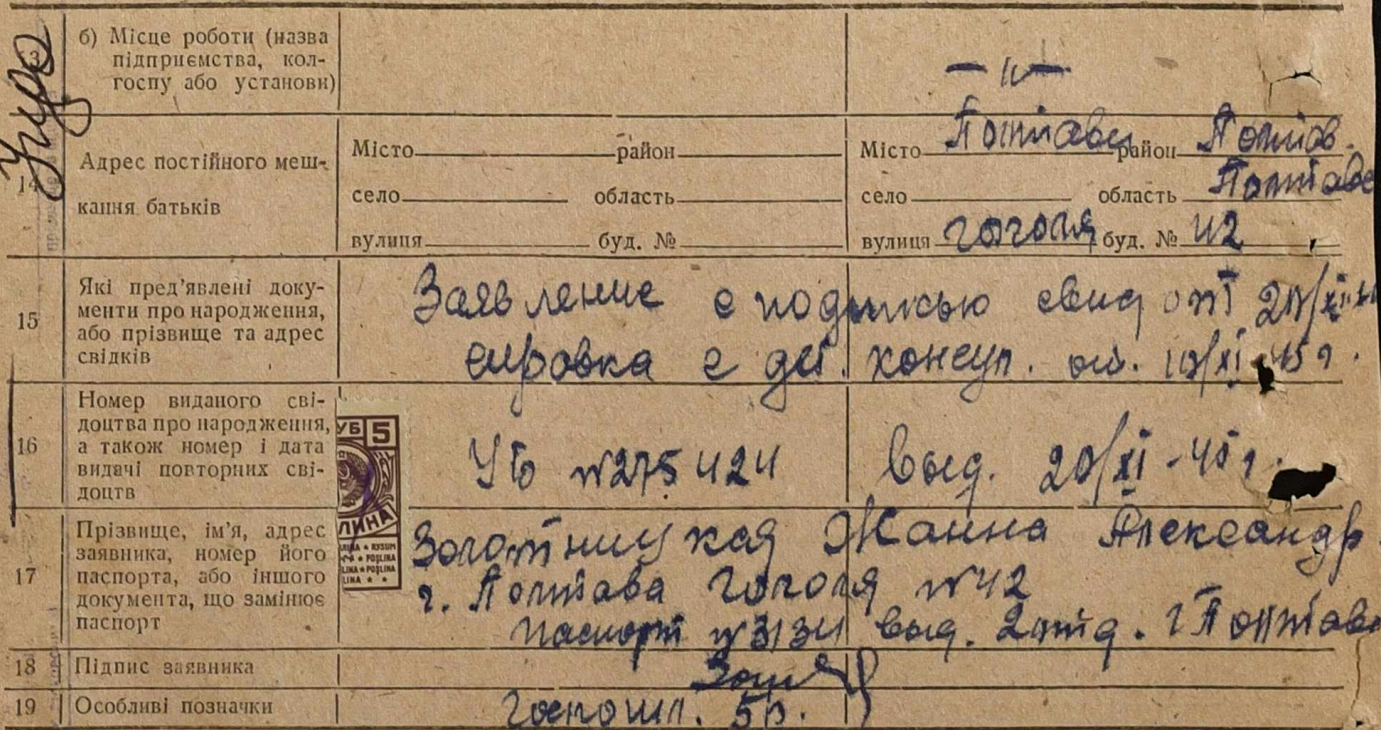 б) Місце роботи (назва
підприємства, кол-
госпу або установи)
— " —
14
Адрес постійного меш-
кання батьків
Місто район
село область
вулиця буд. №
Місто Полтава район Полтав.
село область Полтавс
вулиця гоголя буд. № 42
15
Які пред'явлені доку-
менти про народження,
або прізвище та адрес
свідків
Заявление с
справка с дет. консул. от. /XI 45 г.
16
Номер виданого сві-
доцтва про народження,
а також номер і дата
видачі повторних сві-
доцтв
УБ 5
№ 275424 выд. 20/XI-45 г.
17
Прізвище, ім'я, адрес
заявника, номер його
паспорта, або іншого
документа, що замінює
паспорт
Жанна Александр.
г. Полтава гоголя № 42
паспорт № 3134 выд. 2 отд. г Полтава
18
Підпис заявника
19
Особливі позначки
госпошл. 5р.